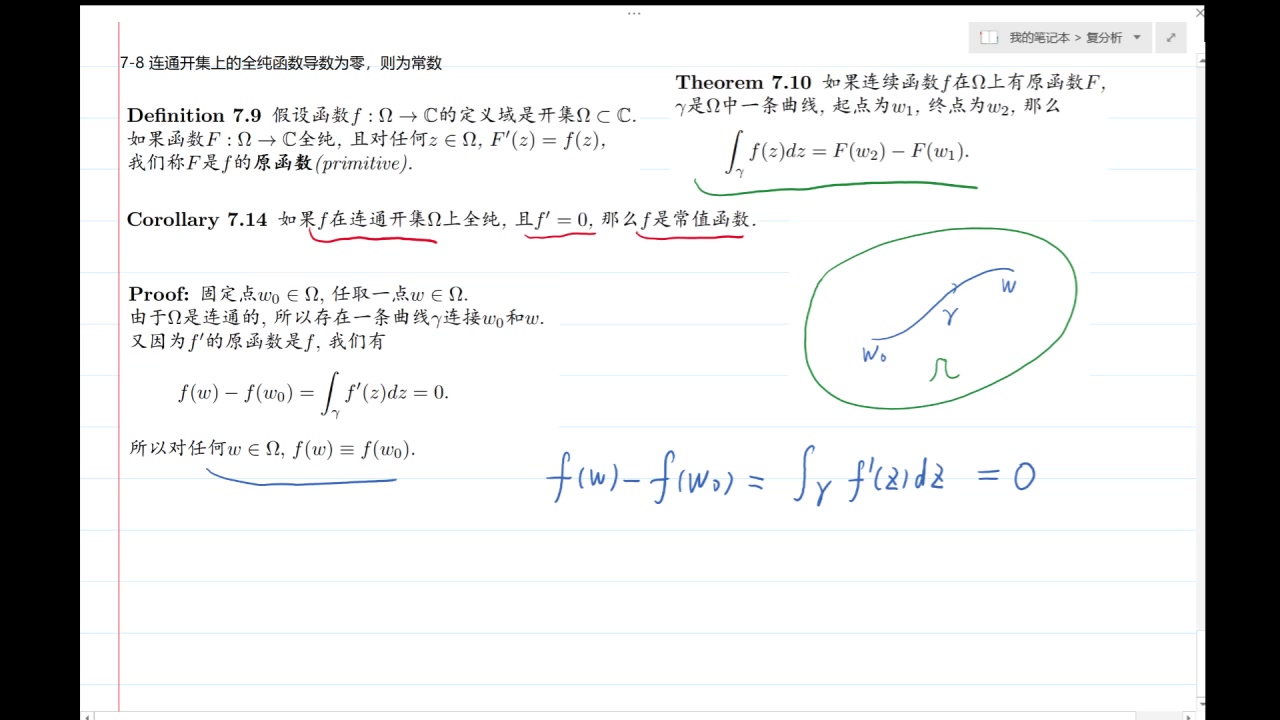 我的笔记本 > 复分析
7-8 连通开集上的全纯函数导数为零，则为常数
Definition 7.9 假设函数f : Ω → ℂ的定义域是开集Ω ⊂ ℂ.
如果函数F : Ω → ℂ全纯, 且对任何z ∈ Ω, F′(z) = f(z),
我们称F是f的原函数(primitive).
Theorem 7.10 如果连续函数f在Ω上有原函数F,
γ是Ω中一条曲线, 起点为w₁, 终点为w₂, 那么
∫_γ f(z)dz = F(w₂) − F(w₁).
Corollary 7.14 如果f在连通开集Ω上全纯, 且f′ = 0, 那么f是常值函数.
Proof: 固定点w₀ ∈ Ω, 任取一点w ∈ Ω.
由于Ω是连通的, 所以存在一条曲线γ连接w₀和w.
又因为f′的原函数是f, 我们有
f(w) − f(w₀) = ∫_γ f′(z)dz = 0.
所以对任何w ∈ Ω, f(w) ≡ f(w₀).
w
γ
w₀
Ω
f(w) − f(w₀) = ∫_γ f′(z)dz = 0